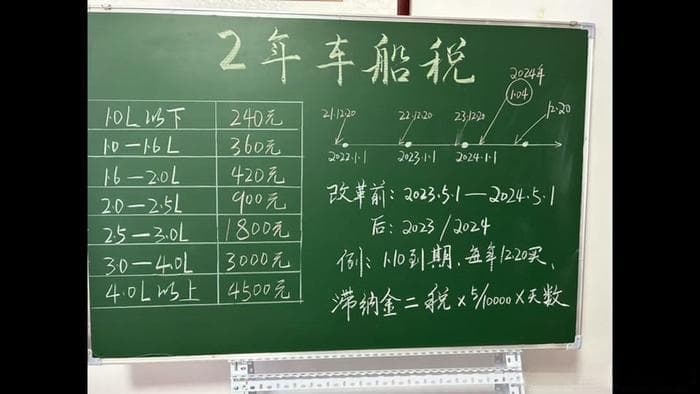 2年车船税
1.0L以下 240元
1.0—1.6L 360元
1.6—2.0L 420元
2.0—2.5L 900元
2.5—3.0L 1800元
3.0—4.0L 3000元
4.0L以上 4500元
2024年
1.04
21.12.20 22.12.20 23.12.20 12.20
2022.1.1 2023.1.1 2024.1.1
改革前：2023.5.1—2024.5.1
后：2023/2024
例：1.10到期，每年12.20买、
滞纳金=税×5/10000×天数